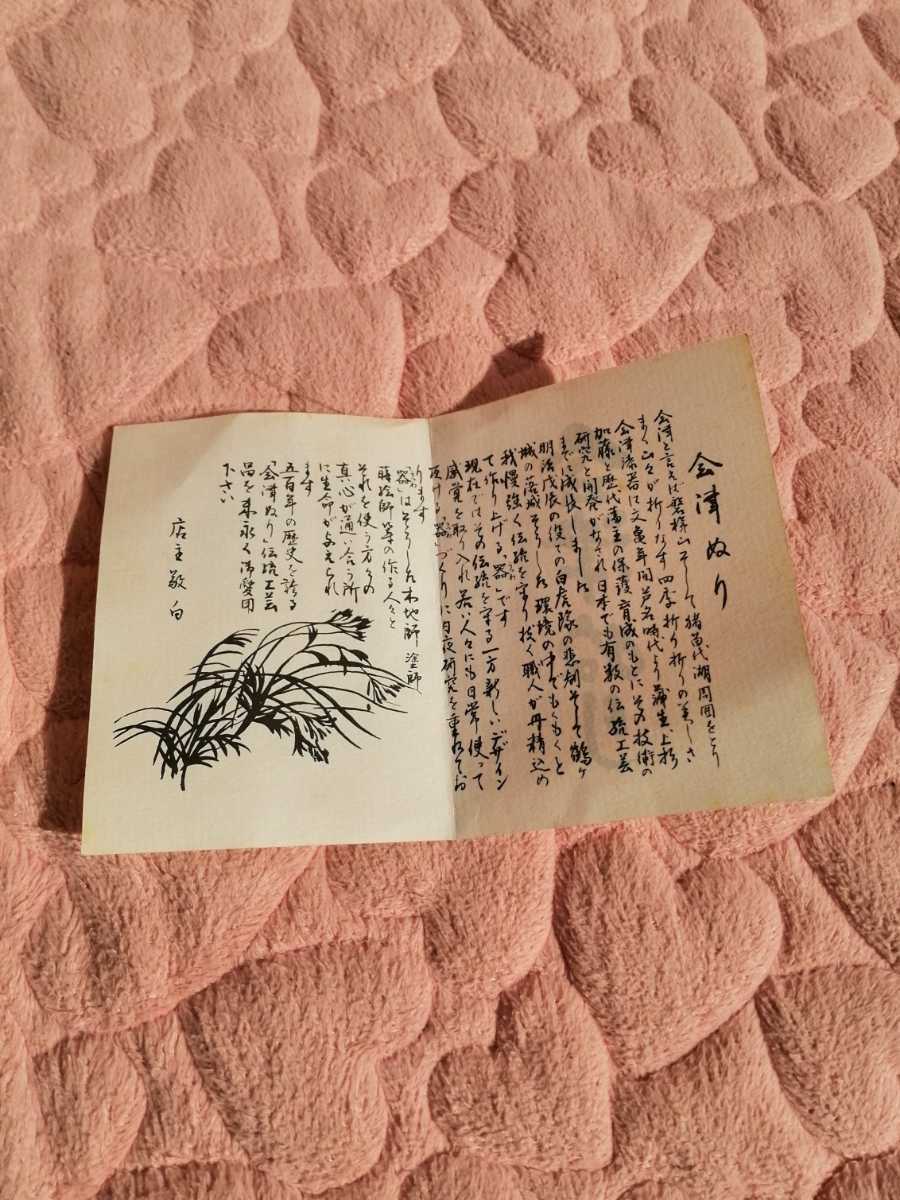 会津ぬり
会津と言えば磐梯山そして猪苗代湖周囲をとり
まく山々が折りなす四季折り折りの美しさ
会津漆器は文亀年間芦名時代より蒲生、上杉
加藤と歴代藩主の保護育成のもとにその技術の
研究と開発がなされ日本でも有数の伝統工芸
までに成長しました
明治戊辰の役での白虎隊の悲劇そして鶴ヶ
城の落城そうした環境の中でもくもくと
我慢強く伝統を守り抜く職人が丹精込め
て作り上げる「器」です
現在ではその伝統を守る一方新しいデザイン
感覚を取り入れ若い人々にも日常使って
頂ける「器」づくりに日夜研究を重ねてお
ります
「器」はそうした木地師塗師
蒔絵師等の作る人々と
それを使う方々の
真心が通い合う所
に生命が与えられ
ます
五百年の歴史を誇る
「会津ぬり」伝統工芸
品を末永く御愛用
下さい
店主敬白